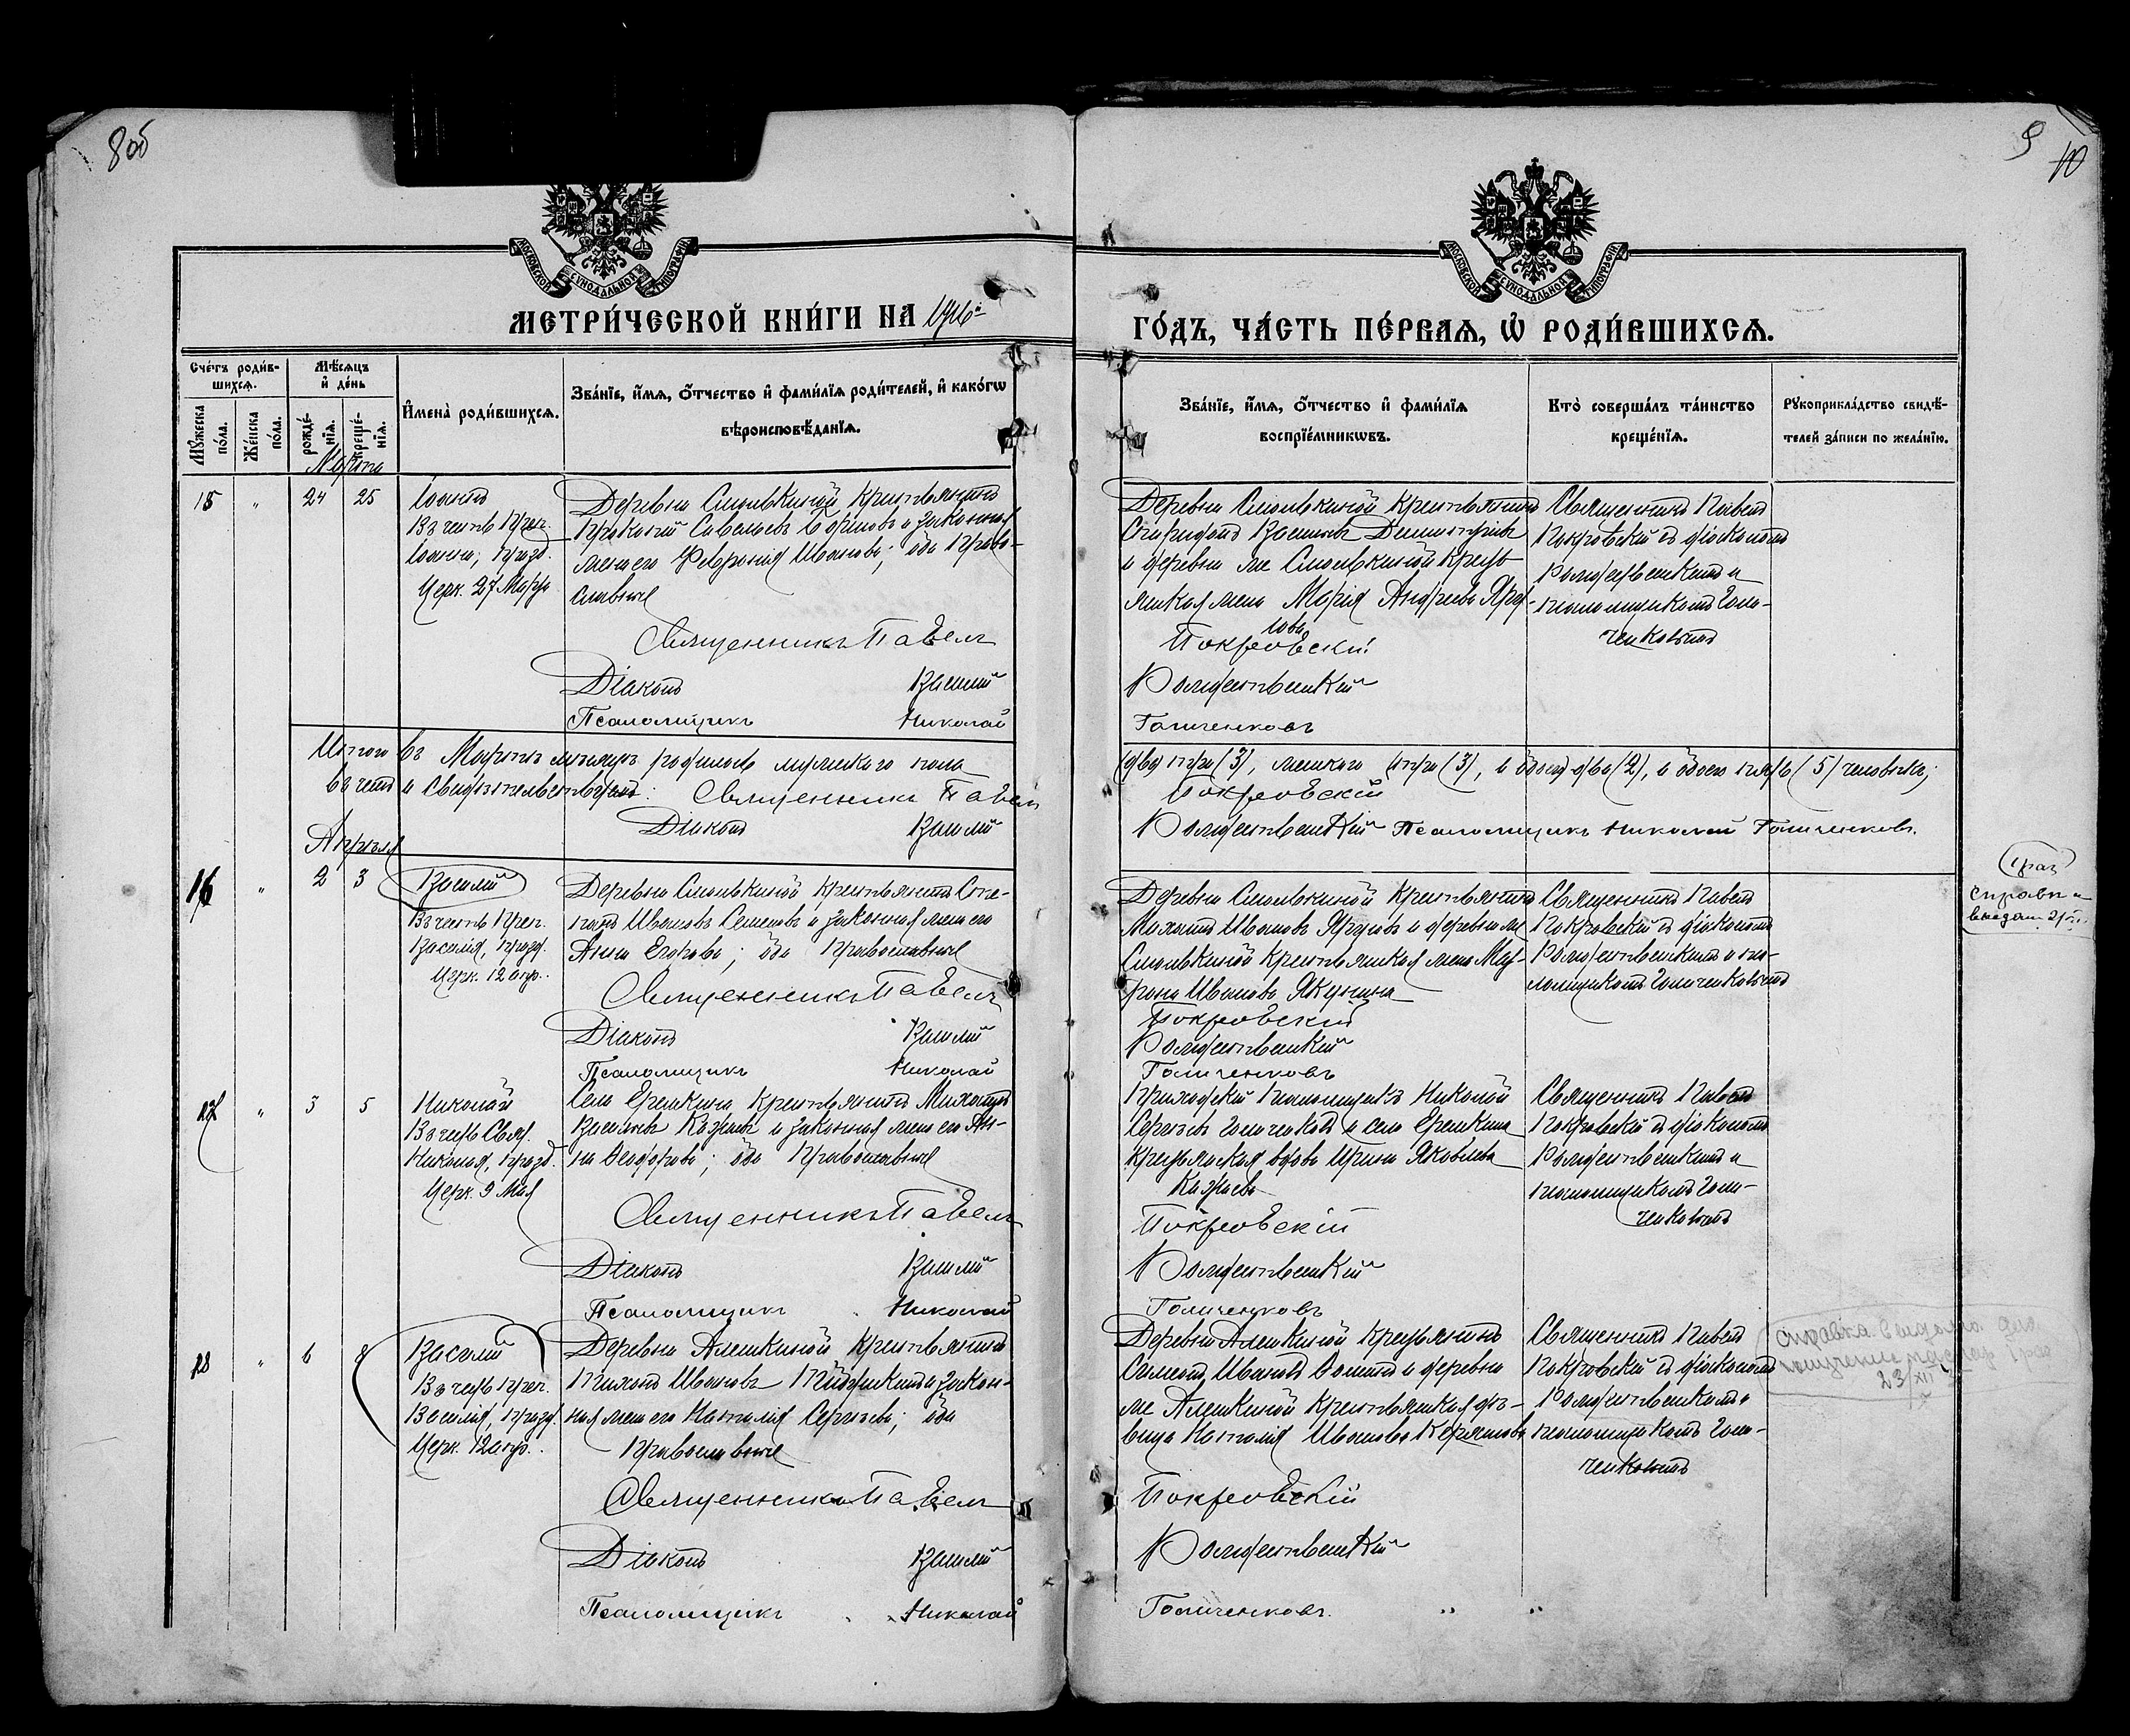 8 об
9
10
МОСКОВСКОЙ СѴНОДАЛЬНОЙ ТИПОГРАФІИ
МОСКОВСКОЙ СѴНОДАЛЬНОЙ ТИПОГРАФІИ
МЕТРИ́ЧЕСКОЙ КНИ́ГИ НА 1916
ГО́ДЪ, ЧА́СТЬ ПЕ́РВАѦ, Ѡ҆ РОДИ́ВШИХСѦ.
Сче́тъ роди́в-
шихсѧ.
Мѣ́сѧцъ
и҆ де́нь
Мꙋ́жеска по́ла.
Же́нска по́ла.
рожде́-
нїѧ.
креще́-
нїѧ.
И҆мена̀ роди́вшихсѧ.
Зва́нїе, и҆́мѧ, ѻ҆́тчество и҆ фами́лїѧ роди́телей, и҆ како́гѡ
вѣроисповѣ́данїѧ.
Зва́нїе, и҆́мѧ, ѻ҆́тчество и҆ фами́лїѧ
воспрїе́мникѡвъ.
Кто̀ соверша́лъ та́инство
креще́нїѧ.
Рꙋкоприкла́дство свидѣ́-
телей за́писи по жела́нїю.
Марта
15 " 24 25
Іоаннъ
Въ честь Преп.
Іоанна, празд.
Церк. 27 Март
Деревни Смолькиной крестьянинъ
Прокопій Савельевъ и законная
жена его Феврония Иванова; оба право-
славные
Священникъ Павелъ
Діаконъ Василій
Псаломщикъ Николай
Деревни Смолькиной крестьянинъ
Спиридонъ Васильевъ Димитріевъ
и деревни же Смолькиной крест
янская жена Марія Андреева
Покровскій
Рождественскій
Голиченковъ
Священникъ Павелъ
Покровскій съ діакономъ
Рождественскимъ и
псаломщикомъ Голи-
ченковымъ
Итого въ Мартѣ мѣсяцѣ родилось мужского пола
три (3), женского три (3), а обоего
въ чемъ и свидѣтельствуемъ: Священникъ Павелъ
Покровскій
Діаконъ Василій
Рождественскій Псаломщикъ Николай Голиченковъ.
Апрѣля
16 " 2 3
Василій
Въ честь Преп.
Василія, празд.
Церк. 12 апр.
Деревни Смолькиной крестьянинъ Сте-
панъ Ивановъ Семеновъ и законная жена его
Анна Егорова; оба православные
Священникъ Павелъ
Діаконъ Василій
Псаломщикъ Николай
Деревни Смолькиной крестьянинъ
Ивановъ и деревни же
Смолькиной крестьянская жена Мат-
рона Иванова Якунина
Покровскій
Рождественскій
Голиченковъ
Священникъ Павелъ
Покровскій съ діакономъ
Рождественскимъ и пса-
ломщикомъ Голиченковымъ
справка
17 " 3 5
Николай
Въ честь Свят.
Николая, празд.
Церк. 9 Мая
Села Еремкина крестьянинъ Михаилъ
Васильевъ и законная жена его Ан-
на Ѳеодорова; оба православные
Священникъ Павелъ
Діаконъ Василій
Псаломщикъ Николай
Приходскій псаломщикъ Николай
Сергѣевъ Голиченковъ и села Еремкина
крестьянская вдова Ирина Яковлева
Покровскій
Рождественскій
Голиченковъ
Священникъ Павелъ
Покровскій съ діакономъ
Рождественскимъ и
псаломщикомъ Голи-
ченковымъ
18 " 6 8
Василій
Въ честь Преп.
Василія, празд.
Церк. 12 апр.
Деревни Алешкиной крестьянинъ
Тихонъ Ивановъ и закон-
ная жена его Наталія Сергѣева; оба
православные
Священникъ Павелъ
Діаконъ Василій
Псаломщикъ Николай
Деревни Алешкиной крестьянинъ
Симеонъ Ивановъ и деревни
же Алешкиной крестьянская дѣ-
вица Наталія Иванова
Покровскій
Рождественскій
Голиченковъ. " "
Священникъ Павелъ
Покровскій съ діакономъ
Рождественскимъ и
псаломщикомъ Голи-
ченковымъ
Справка выдана для
получения
23/XII